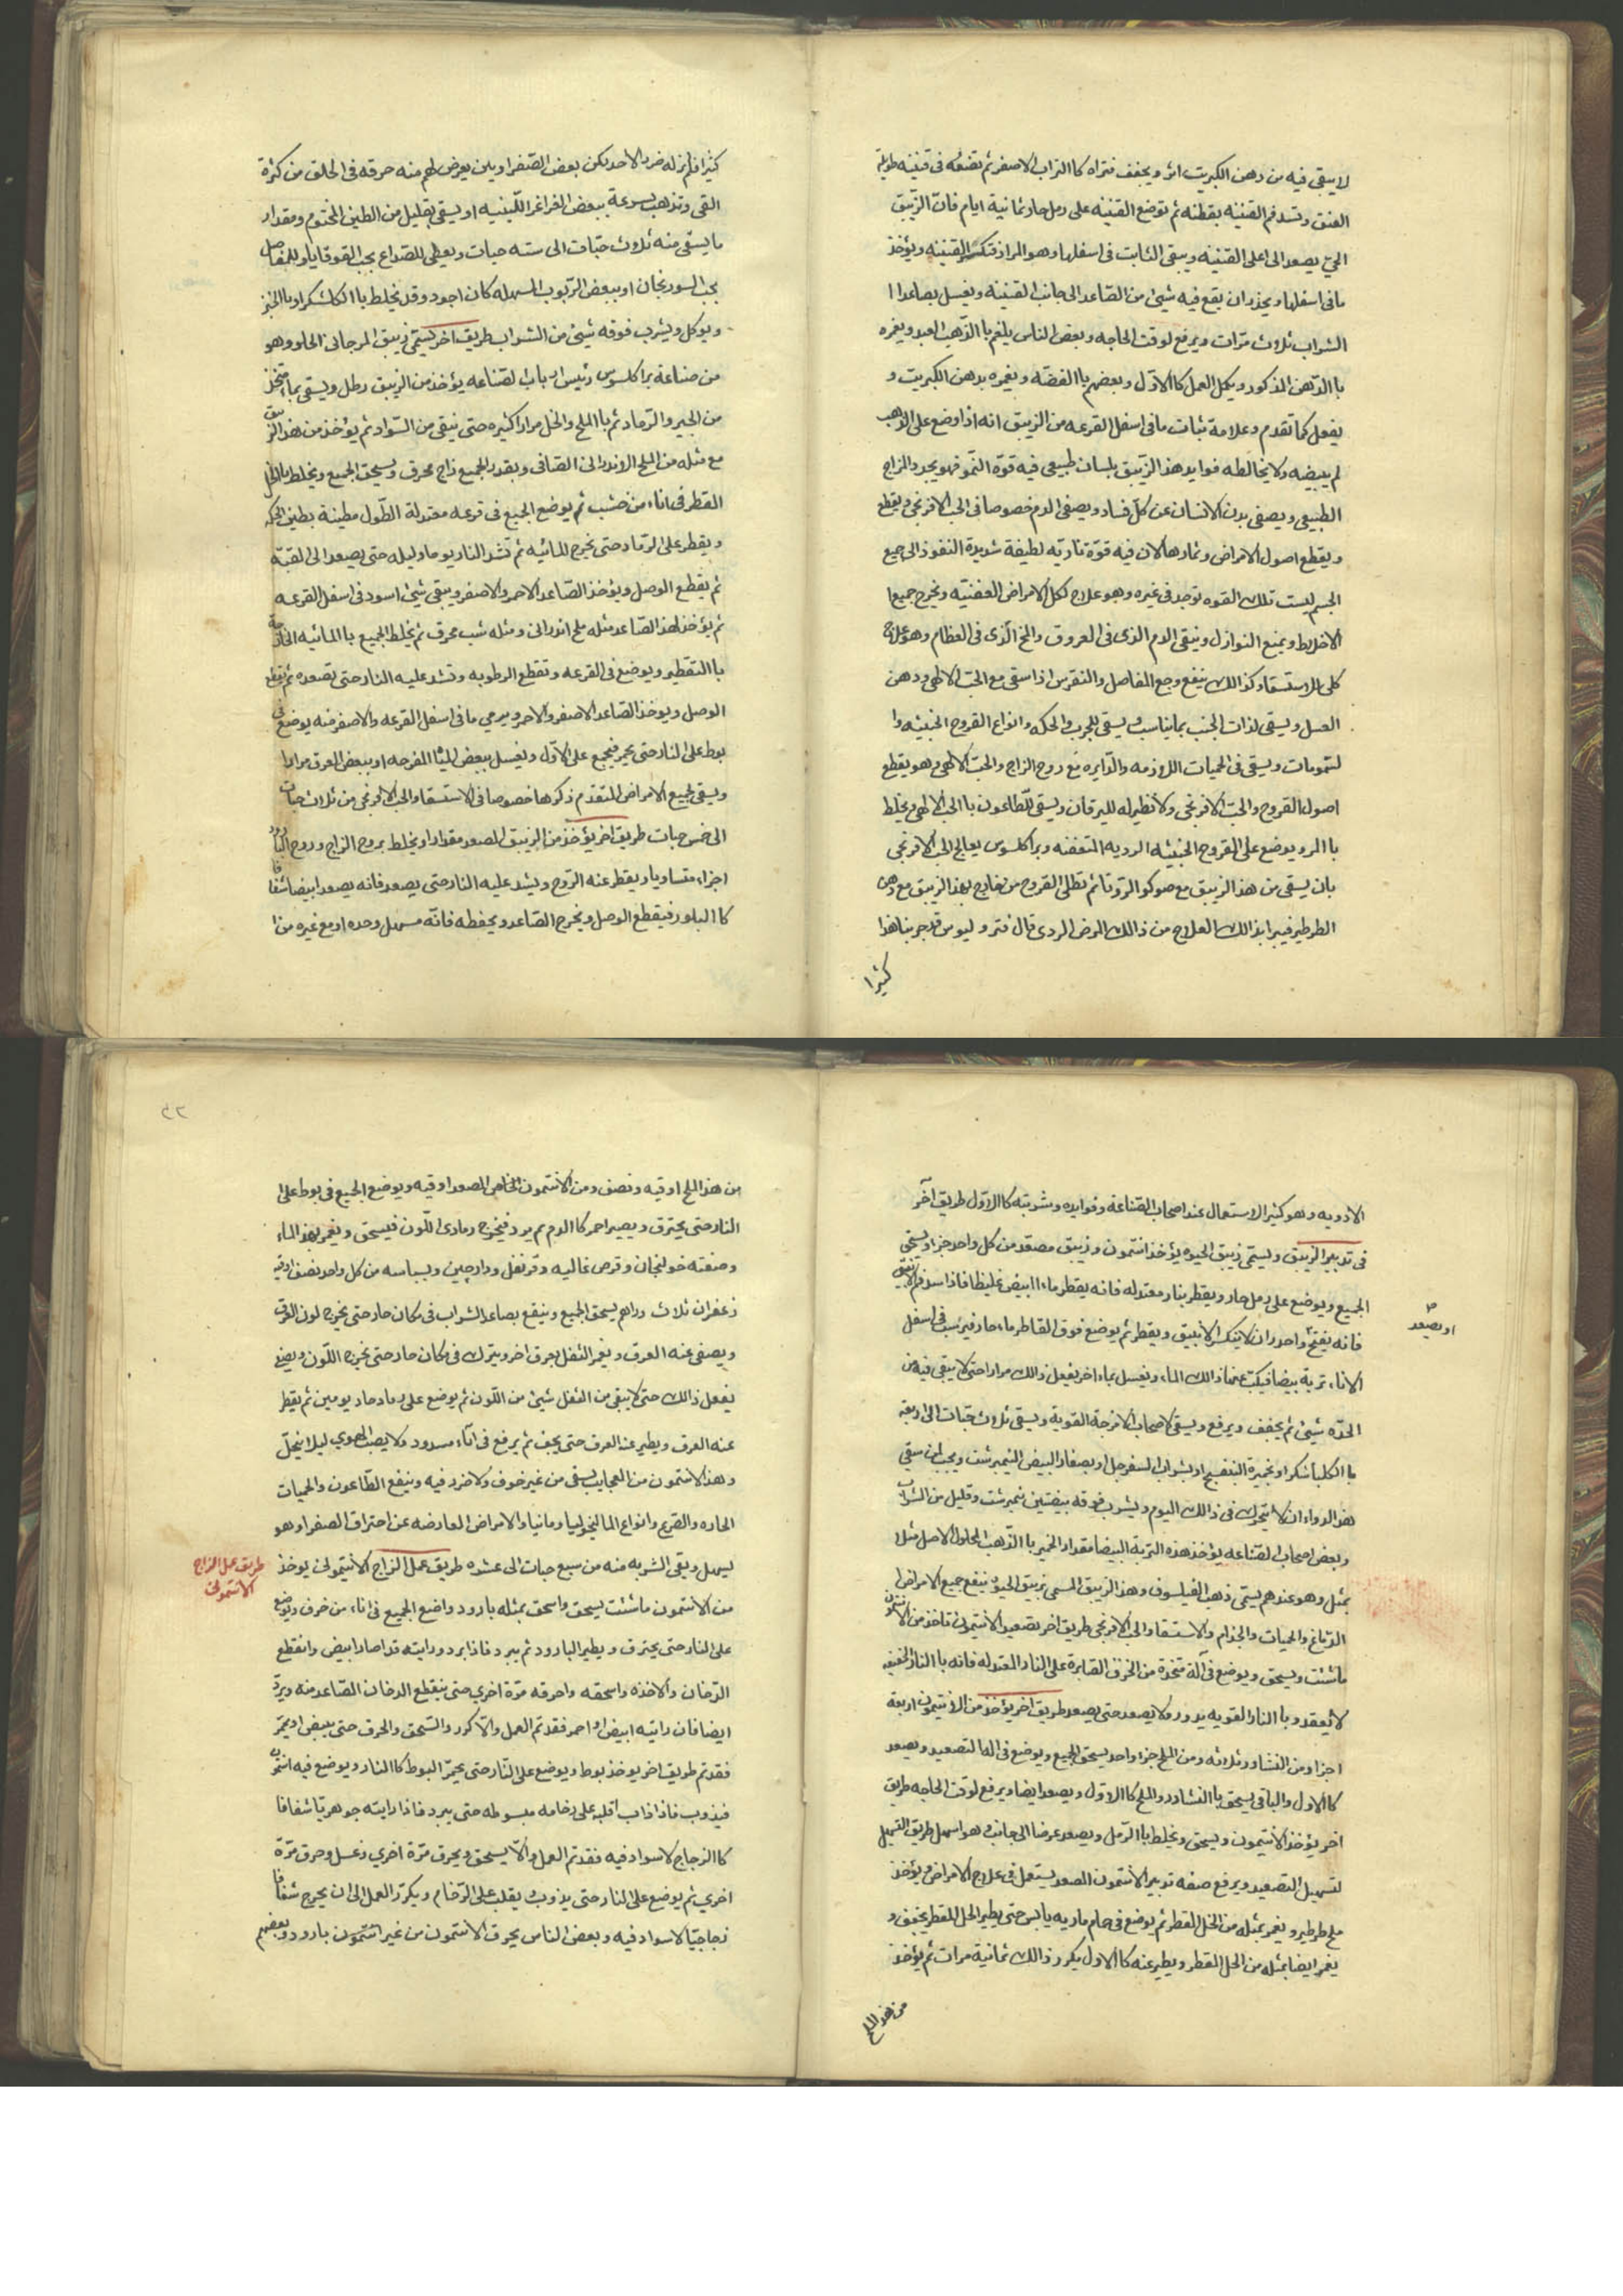 لا يبقى فيه من دهن الكبريت اثر ويجفف فتراه كا التراب الاصفر ثم تضعه فى قنينه طويلة
العنق وتسد فم القنينه بقطنه ثم توضع القنينه على رمل حار ثمانية ايام فان الزيبق
الحى يصعد الى اعلى القنينه ويبقى الثابت فى اسفلها وهو المراد فتكسر القنينه ويؤخذ
ما فى اسفلها ويحذر ان يقع فيه شيئ من الصاعد الى جانب القنينه ويغسل بصاعد ا
الشراب ثلاث مرّات ويرفع لوقت الحاجه وبعض الناس يلغم با الذهب العبد ويغمره
با الدهن المذكور ويكمل العمل كا الاول وبعضهم با الفضه ويغمره بدهن الكبريت و
يفعل كما تقدم وعلامة ثبات ما فى اسفل القرعه من الزيبق انه اذا وضع على الذهب
لم يبيضه ولا يخالطه فوايد هذ الزيبق بلسان طبيعى فيه قوّة النموّ فهو يجدد المزاج
الطبيعى ويصفى بدن الانسان عن كلّ فساد ويصفى الدم خصوصا فى الحب الافرنجى ويقطع
ويقطع اصول الامراض وثمارها لان فيه قوّة ناريّه لطيفة شديدة النفوذ الى جميع
الجسم ليست تلك القوه توجد فى غيره وهو علاج لكل الامراض العفنيّه ويخرج جميع ا
الاخلاط ويمنع النوازل وينقى الدم الذى فى العروق والمخ الّذى فى العظام وهو علاج
كلى للاستسقا وكذالك ينفع وجع المفاصل والنقرس اذا سقى مع الحبّ الالهى ودهن
العسل ويسقى لذات الجنب بما يناسب ويسقى للجرب والحكه وانواع القروح الخبيثه وا
لسّمومات ويسقى فى الحميات اللازمه والدايره مع روح الزاج والحبّ الالهى وهو يقطع
اصول القروح والحبّ الافرنجى ولا نظير له لليرقان ويسقى للطاعون با الحبّ الالهى ويخلط
با المرو يوضع على القروح الخبيثه الرديه المتعفنه وبراكلسوس يعالج الحب الافرنجى
بان يسقى من هذ الزيبق مع صوكو الروتا ثم تطلى القروح من خارج بهذ الزيبق مع دهن
الطرطير فيبرا بذالك العلاج من ذالك المرض الردى قال فتروليوس قد جربنا هذا
كثيرا
كثيرا فلم نر له ضرر الا حد لكن بعض الصّفراويين يعرض لهم منه حرقه فى الحلق من كثرة
القى وتذهب بسرعة ببعض الغراغر اللّبنيه او يسقى بقليل من الطين المختوم ومقدار
ما يسقى منه ثلاث حبّات الى سته حبات ويعطى للصداع بحب القوقايا وللمفاصل
بحب السورنجان او ببعض الرّبوب المسهله كان اجود وقد يخلط با الكلشكر او با الخبز
ويوكل ويشرب فوقه شيئ من الشراب طريق اخر يسمّى زيبق المرجانى الحلو وهو
من صناعة براكلسوس رئيس ارباب الصّناعه يؤخذ من الزيبق رطل ويسقى بماء متخذ
من الجير والرّماد ثم با الملح والخل مرارا كثيره حتى ينقى من السّواد ثم يؤخذ من هذ الزيبق
مع مثله من الملح الاندرانى الصّافى وبقدر الجميع زاج محرق ويسحق الجميع ويخلط با الخل
القطر فى اناء من خشب ثم يوضع الجميع فى قرعه معتدلة الطّول مطينة بطين الحكمه
ويقطر على الرّماد حتى تخرج المائيّه ثم تشد النار يوما وليله حتى يصعد الى القبّه
ثم يقطع الوصل ويؤخذ الصّاعد الاحمر والاصفر ويبقى شيئ اسود فى اسفل القرعه
ثم يؤخذ لهذ الصّاعد مثله ملح اندرانى ومثله شب محرق ثم يخلط الجميع با المائيه الخارجة
با التقطير ويوضع فى القرعه وتقطع الرطوبه وتشد عليه النار حتى تصعده ثم يقطع
الوصل ويوخذ الصّاعد الاصفر والاحمر ويرمى ما فى اسفل القرعه والاصفر منه يوضع فى
بوط على النار حتى يحمر فيجمع على الاوّل ويغسل ببعض المياه المفرحه او ببعض العرق مرارا
ويسقى لجميع الامراض المتقدم ذكرها خصوصا فى الاستسقا والحب الافرنجى من ثلاث حبات
الى خمس حبات طريق اخر يؤخذ من الزيبق المصعد مقدار او يخلط بروح الزاج وروح البارود
اجزاء متساويا ويقطر عنه الرّوح ويشد عليه النار حتى يصعد فانه يصعد ابيضا شفافا
كا البلور فيقطع الوصل ويخرج الصّاعد ويحفظه فانّه مسهل وحده او مع غيره من ا
الادويه وهو كثير الاستعمال عند اصحاب الصّناعة وفوايده وشربته كا الاوّل طريق آخر
فى تدبير الزيبق ويسمّى زيبق الحيوه يؤخذ انتمون وزيبق مصعّد من كل واحد جزاء ويسحق
الجميع ويوضع على رمل حار ويقطر بنار معتدله فانه يقطر ماء ابيض غليظا فاذا سد فم الانبيق
فانه يفتح واحذر ان لا ينكسر الانبيق ويقطر ثم يوضع فوق القاطر ماء حار فيرسب فى اسفل
او يصعد
الاناء تربة بيضا فيكب عنها ذالك الماء ويغسل بماء اخر يفعل ذالك مرارا حتى لا يبقى فيه من
الحدّه شيئ ثم يجفف ويرفع ويسقى لاصحاب الامزجة القوية ويسقى ثلاث حبّات الى اربعه
با الكلبا شكر او بخميرة البنفسج او بشراب السفرجل او بصفار البيض النيمبرشت ويجب لمن سقى
هذ الدواء ان لا يتحرك فى ذالك اليوم ويشرب فوقه بيضتين نيمبرشت وقليل من الشراب
وبعض اصحاب الصّناعه يؤخذ هذه التربة البيضا مقدار الخمير با الذّهب المحلول الاصل مثلا
بمثل وهو عندهم يسمّى ذهب الفيلسوف وهذ الزيبق المسمى بزيبق الحيوه ينفع جميع الامراض
الدّماغ والحميات والجذام والاستسقا والحب الافرنجى طريق اخر بتصعيد الانتيمونى تاخذ من الانتمون
ما شئت ويسحق ويوضع فى آلة متخذة من الخزف الصابرة على النار المعتدله فانه با النار الخفيفه
لا يصعد وبا النار القويه يدور ولا يصعد حتى يصعد طريق اخر يؤخذ من الانتيمون اربعة
اجزا ومن النشادر ثلاثه ومن الملح جزاء واحد يسحق الجميع ويوضع فى الة التصعيد ويصعد
كا الاول والباقى يسحق با النشادر والملح كا الاوّل ويصعد ايضا ويرفع لوقت الحاجه طريق
اخر يؤخذ الانتيمون ويسحق ويخلط با الرّمل ويصعد عرضا الى جانب وهو اسهل طريق التسهيل
لتسهيل التصعيد ويرفع صفه تدبير الانتمون المصعد يستعمل فى علاج الامراض ويؤخذ
ملح طرطير ويغمر بمثله من الخل المقطر ثم يوضع فى حمام ماريه يابس حتى يطير الخل المقطر يجفف و
يغمر ايضا بمثله من الخل المقطر ويطير عنه كا الاول يكرر ذالك ثمانية مرات ثم يؤخذ
من هذ الملح
٤٣
من هذ الملح اوقيه ونصف ومن الانتمون الخاص المصعد اوقيه ويوضع الجميع فى بوط على ا
النار حتى يحترق ويصير احمر كا الدم ثم يبرد فيخرج رمادى اللّون فيسحق ويغمر بهذ الماء
وصفته خولنجان وقرص غاليه وقرنفل ودارچين وبسباسه من كل واحد نصف اوقيه
زعفران ثلاث دراهم يسحق الجميع وينقع بصاعد الشراب فى مكان حار حتى يخرج لون العرق
ويصفى عنه العرق ويغمر الثفل بعرق اخر ويترك فى مكان حار حتى يخرج اللّون ويصفى
يفعل ذالك حتى لا يبقى من الثفل شيئ من اللّون ثم يوضع على رماد حار يومين ثم يقطر
عنه العرق ويطير عنه العرق حتى يجف ثم يرفع فى آناء مسدود ولا يصب الهوي ليلا ينحلّ
وهذ الانتمون من العجايب يسقى من غير خوف ولا ضرر فيه وينفع الطّاعون والحميات
الحاره والصّرع وانواع الماليخوليا ومانيا والامراض العارضه عن احتراق الصفرا وهو
يسهل ويقى الشربه منه من سبع حبات الى عشره طريق عمل الزاج الانتيمونى يوخذ
طريق عمل الزاج
الانتمونى
من الانتمون ما شئت يسحق واسحق بمثله بارود واضع الجميع فى اناء من خزف ويوضع
على النار حتى يحترق ويطير البارود ثم يبرد فاذا برد ورايته قد اصار ابيض وانقطع
الدّخان والا خذه واسحقه واحرقه مرّة اخري حتى ينقطع الدخان الصّاعد منه ويبرّد
ايضا فان رايته ابيض او احمر فقد تم العمل والا كرر والسّحق والحرق حتى يبيض او يحمّر
فقد تم طريق اخر يوخذ بوط ويوضع على النّار حتى يحمرّ البوط كا النار ويوضع فيه انتمون
فيذوب فاذا ذاب اقلبه على رخامه مبسوطه حتى يبرد فاذا رايته جوهريّا شفافا
كا الزجاج لا سواد فيه فقد تم العمل والا يسحق ويحرق مرّة اخري وغسل وحرق مرّة
اخري ثم يوضع على النار حتى يذوب ويقلب على الرّخام ويكرّر العمل الى ان يخرج شفافا
زجاجيّا لا سواد فيه وبعض الناس يحرق الانتمون من غير بارود وبعضهم